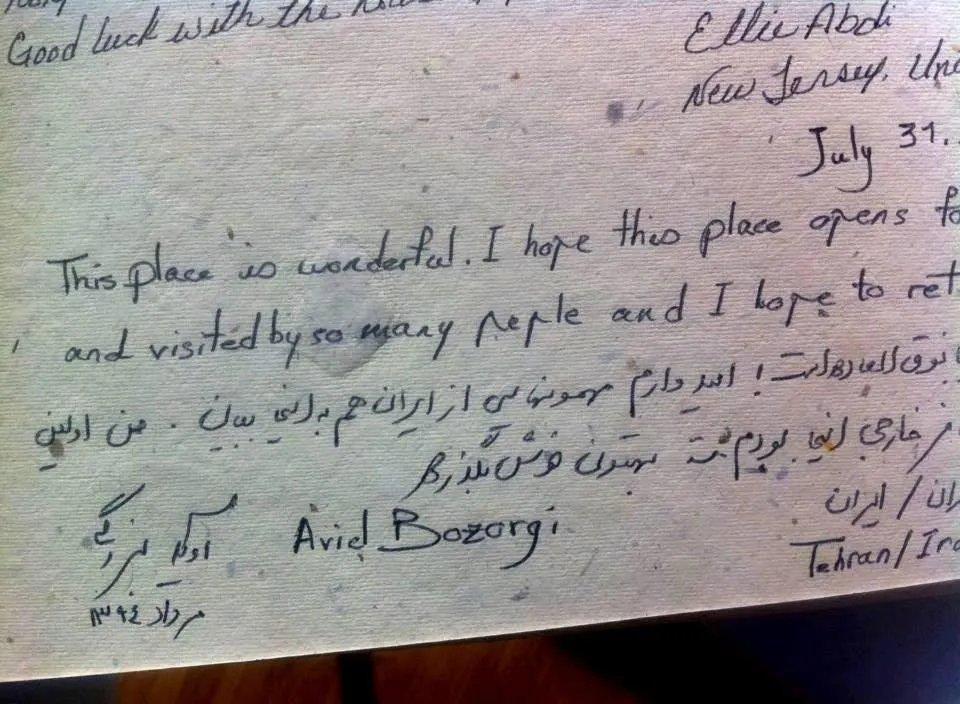 Good luck with the
Ellie Abdi
New Jersey, Uni
July 31.
This place is wonderful. I hope this place opens fo
and visited by so many people and I hope to ret
فوق العاده است! امیدوارم مهمونهایی از ایران هم به اینجا بیان. من اولین
خارجی اینجا بودم بهتون خوش بگذره
ران / ایران
Arid Bozorgi
Tehran/Ira
مرداد ۱۳۹۴